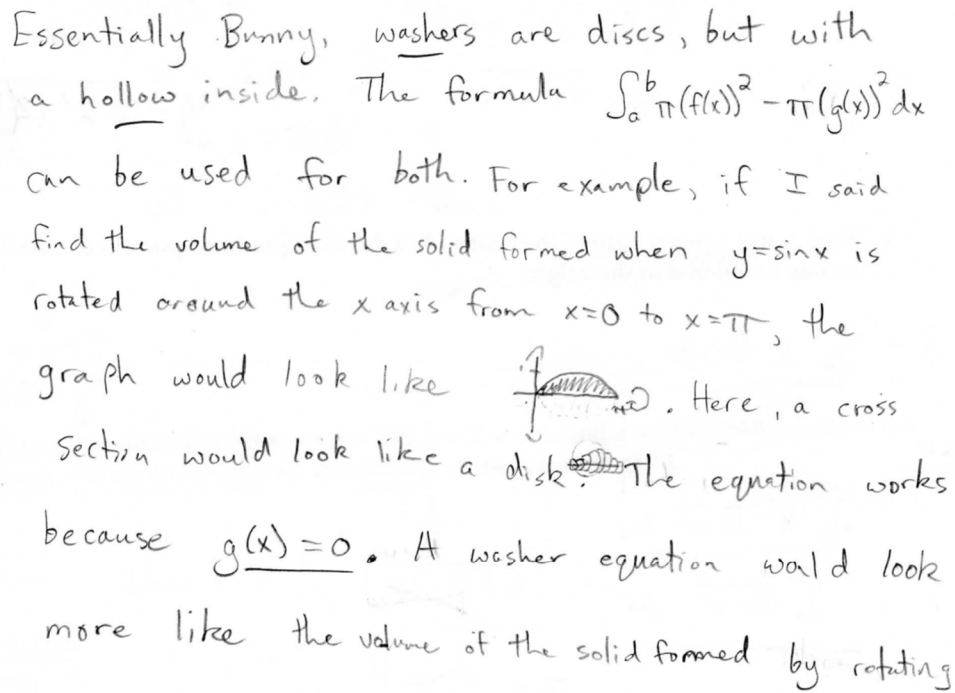 Essentially Bunny, washers are discs, but with
a hollow inside. The formula ∫ₐᵇ π(f(x))² - π(g(x))² dx
can be used for both. For example, if I said
find the volume of the solid formed when y=sinx is
rotated around the x axis from x=0 to x=π, the
graph would look like . Here, a cross
section would look like a disk. The equation works
because g(x) = 0. A washer equation would look
more like the volume of the solid formed by rotating